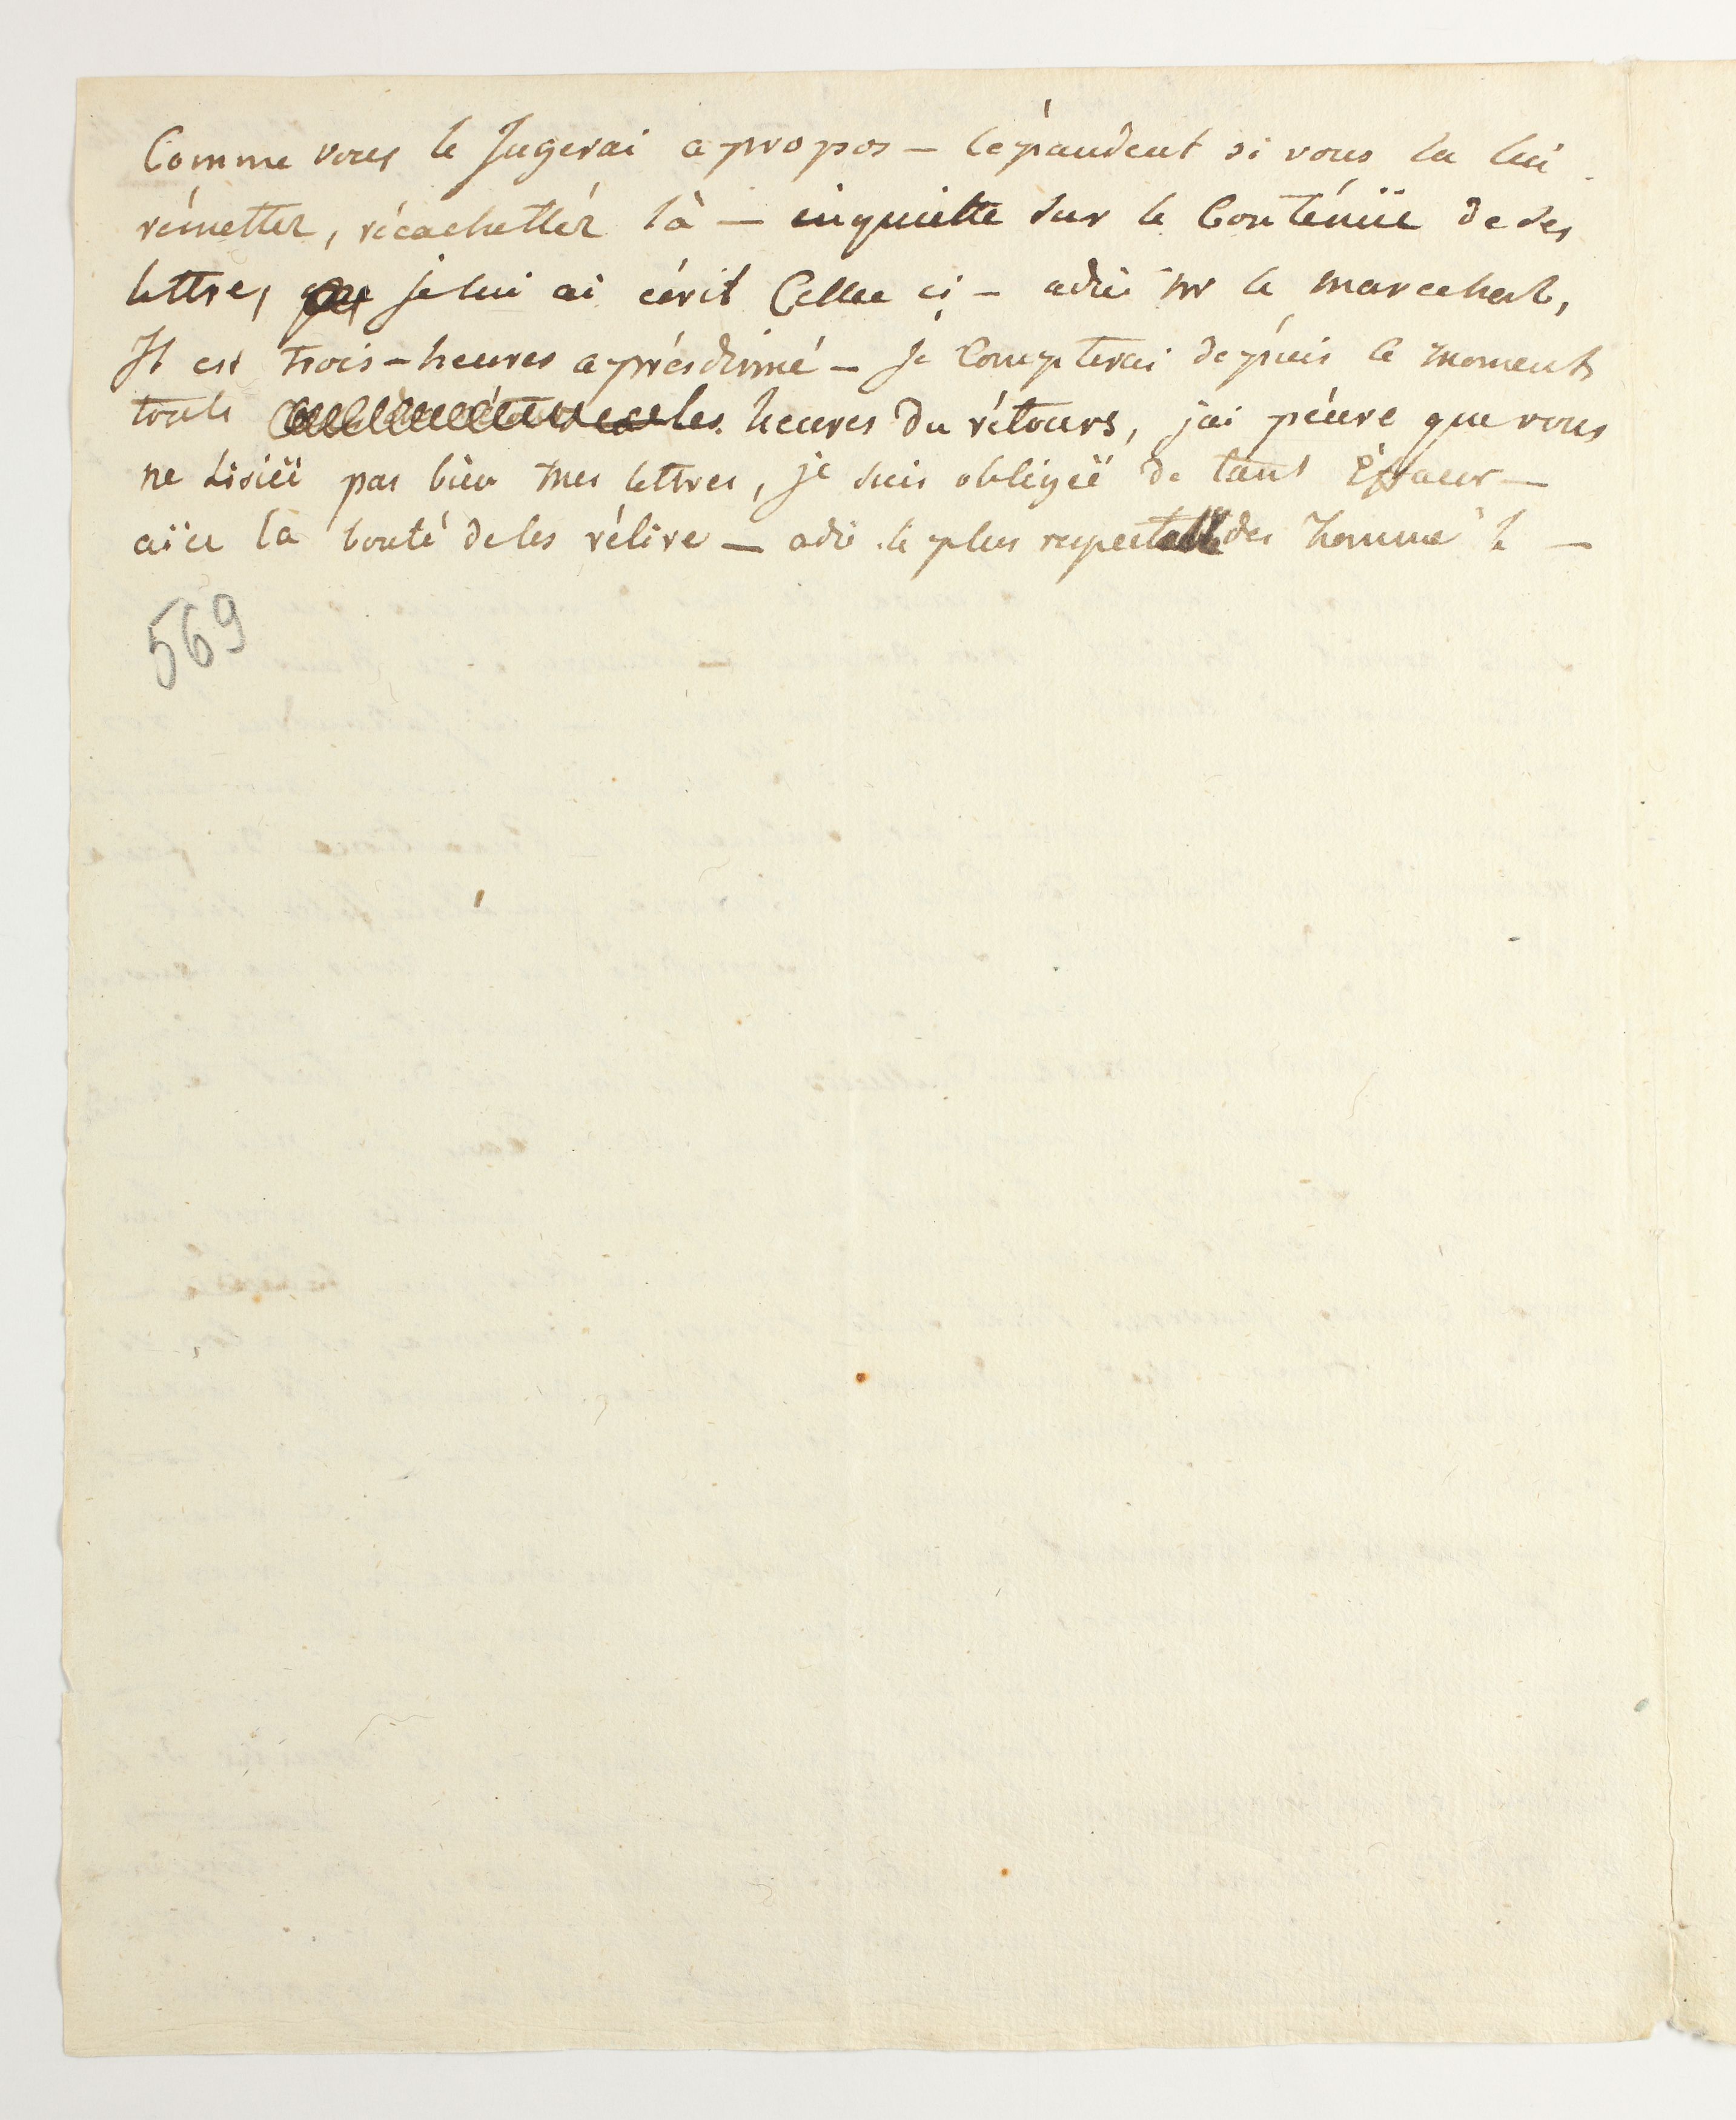 Comme vous le Jugerai a propos – cépandent si vous la lui
rémetter, récachettér là – inquiette sur le Conténüe de ses
lettres, je lui ai écrit Celle ci – adie mr le marechal,
Il est trois-heures aprésdinné – je Compterai dépuis le moment
toute les heures du rétours, jai péure que vous
ne Lisiéz pas bien mes lettres, je suis obligéë de tant Éffacer –
aïez la bonté de les rélire – adie le plus respectable des homme –
569